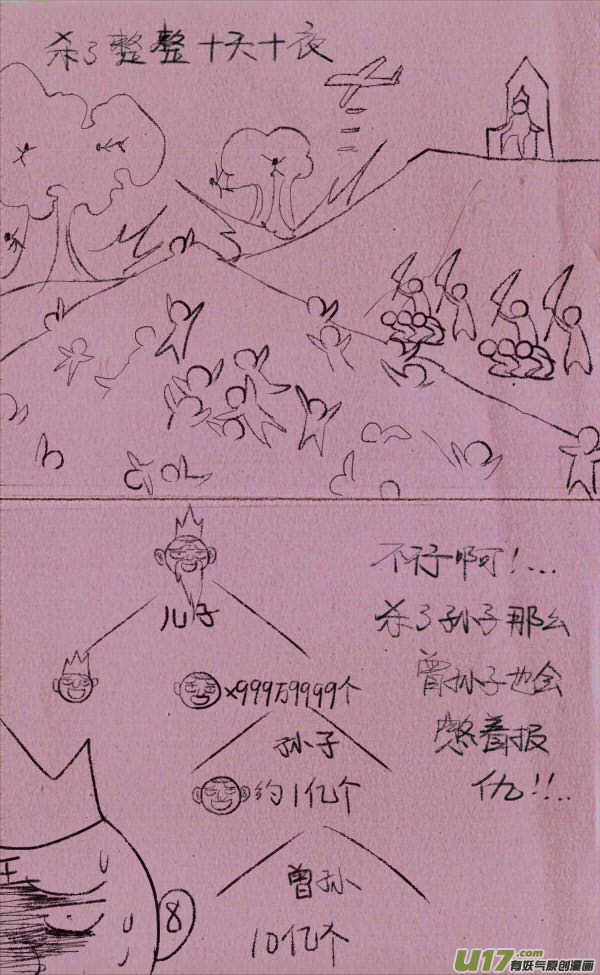 杀了整整十天十夜
儿子
x999万9999个
孙子
约1亿个
曾孙
10亿个
不行啊!...
杀了孙子那么
曾孙子也会
憋着报
仇!!...
王
8
U17.com
有妖气原创漫画